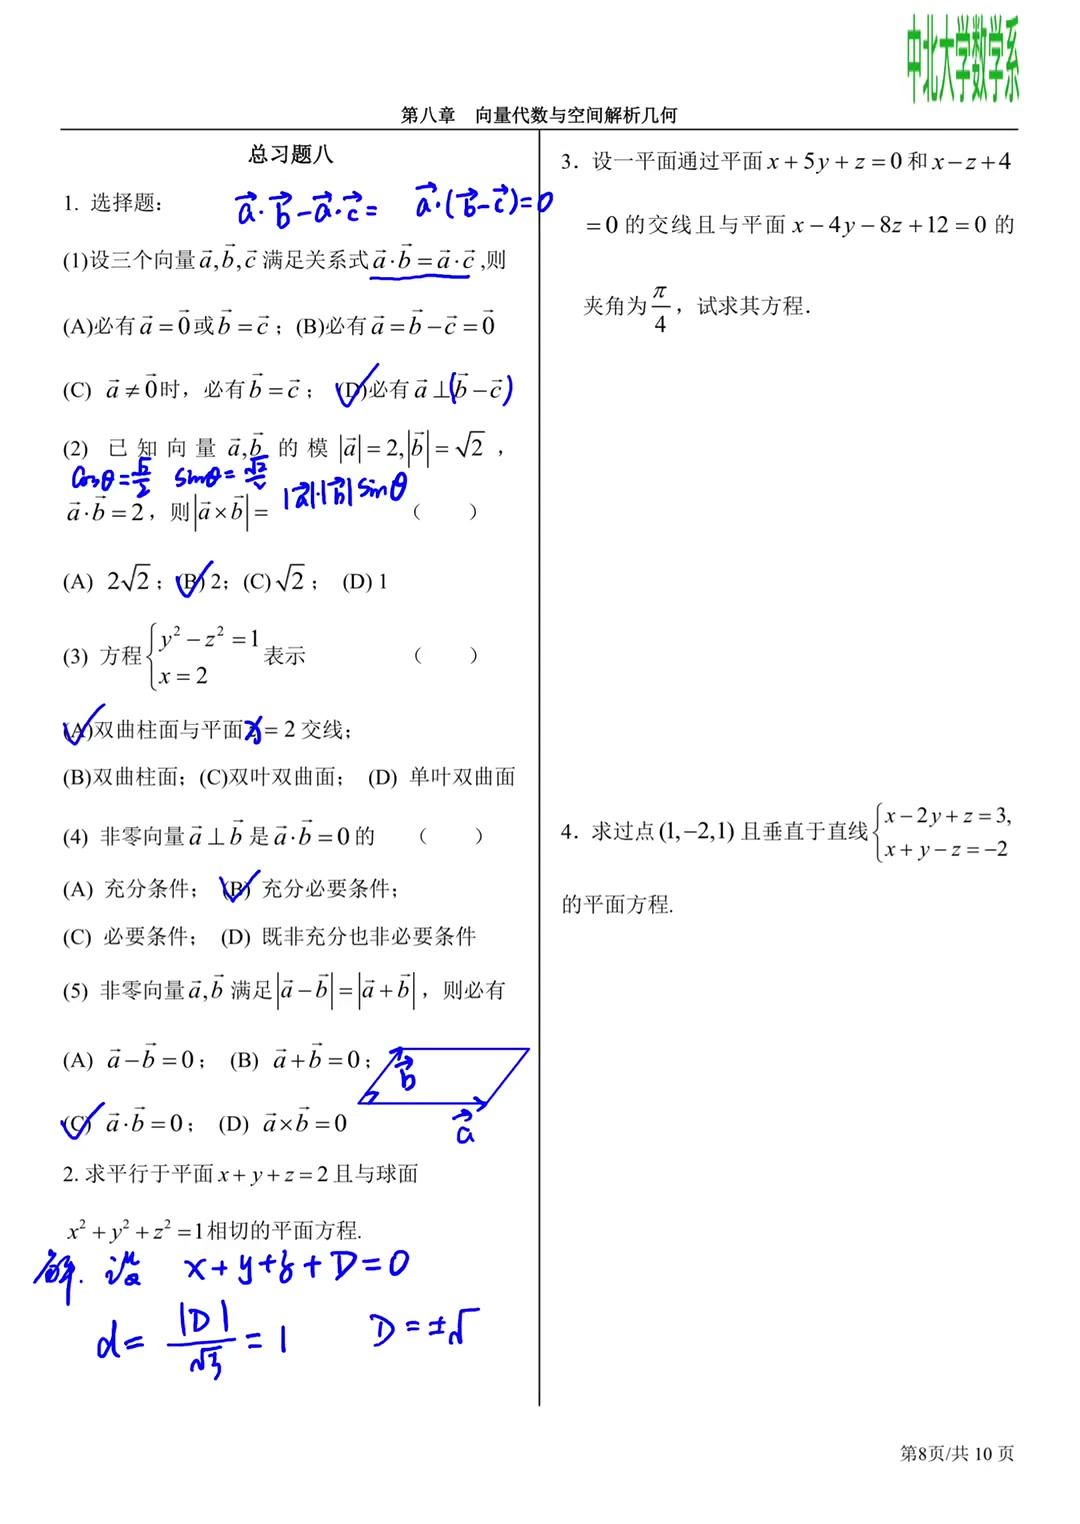 中北大学数学系
第八章 向量代数与空间解析几何
总习题八
1. 选择题:
a⃗·b⃗-a⃗·c⃗= a⃗·(b⃗-c⃗)=0
(1)设三个向量a⃗,b⃗,c⃗满足关系式a⃗·b⃗=a⃗·c⃗,则
(A)必有a⃗=0⃗或b⃗=c⃗;(B)必有a⃗=b⃗-c⃗=0⃗
(C) a⃗≠0⃗时，必有b⃗=c⃗; (D)必有a⃗⊥(b⃗-c⃗)
(2) 已知向量a⃗,b⃗的模|a⃗|=2,|b⃗|=√2,
cosθ=√2/2 sinθ=√2/2 |a⃗|·|b⃗|sinθ
a⃗·b⃗=2, 则|a⃗×b⃗|= ( )
(A) 2√2; (B) 2; (C)√2; (D) 1
(3) 方程{y²-z²=1 x=2 表示 ( )
(A)双曲柱面与平面x=2交线;
(B)双曲柱面; (C)双叶双曲面; (D) 单叶双曲面
(4) 非零向量a⃗⊥b⃗是a⃗·b⃗=0的 ( )
(A) 充分条件; (B) 充分必要条件;
(C) 必要条件; (D) 既非充分也非必要条件
(5) 非零向量a⃗,b⃗满足|a⃗-b⃗|=|a⃗+b⃗|，则必有
(A) a⃗-b⃗=0; (B) a⃗+b⃗=0;
b⃗
(C) a⃗·b⃗=0; (D) a⃗×b⃗=0
a⃗
2. 求平行于平面x+y+z=2且与球面
x²+y²+z²=1相切的平面方程.
解. 设 x+y+z+D=0
d=|D|/√3=1 D=±√
3. 设一平面通过平面x+5y+z=0和x-z+4
=0的交线且与平面x-4y-8z+12=0的
夹角为π/4, 试求其方程.
4. 求过点(1,-2,1)且垂直于直线{x-2y+z=3, x+y-z=-2
的平面方程.
第8页/共 10 页